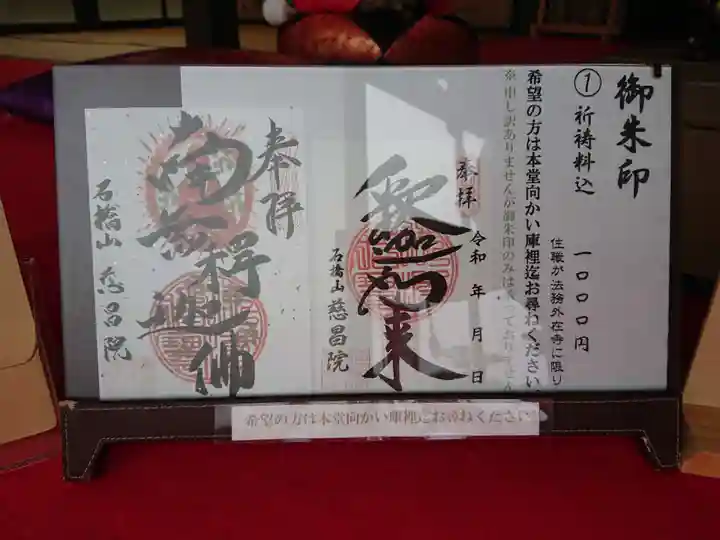 御朱印
① 祈祷料込 一〇〇〇円
住職が法務外在寺に限り
希望の方は本堂向かい庫裡迄お尋ねください
※申し訳ありませんが御朱印のみは
ておりません
奉拝
釋迦如来
令和 年 月 日
石橋山 慈昌院
奉拝
南無釋迦佛
石橋山 慈昌院
希望の方は本堂向かい庫裡迄お尋ねください